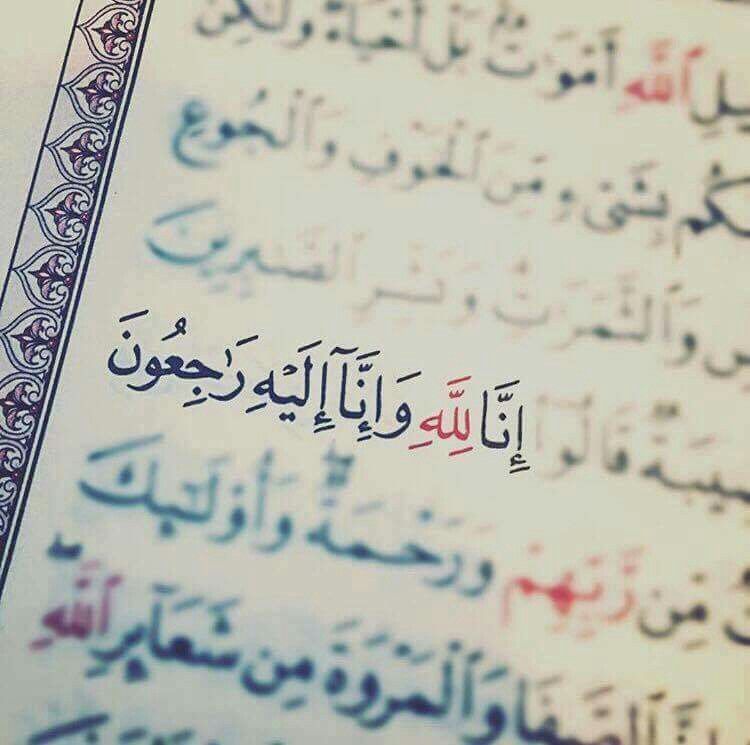 ٱللَّهِ أَمْوَٰتٌۢ بَلْ أَحْيَآءٌ وَلَٰكِن
بِشَىْءٍ مِّنَ ٱلْخَوْفِ وَٱلْجُوعِ
وَٱلثَّمَرَٰتِ وَبَشِّرِ ٱلصَّٰبِرِينَ
قَالُوٓا۟ إِنَّا لِلَّهِ وَإِنَّآ إِلَيْهِ رَٰجِعُونَ
مِّن رَّبِّهِمْ وَرَحْمَةٌ وَأُو۟لَٰٓئِكَ
ٱلصَّفَا وَٱلْمَرْوَةَ مِن شَعَآئِرِ ٱللَّهِ